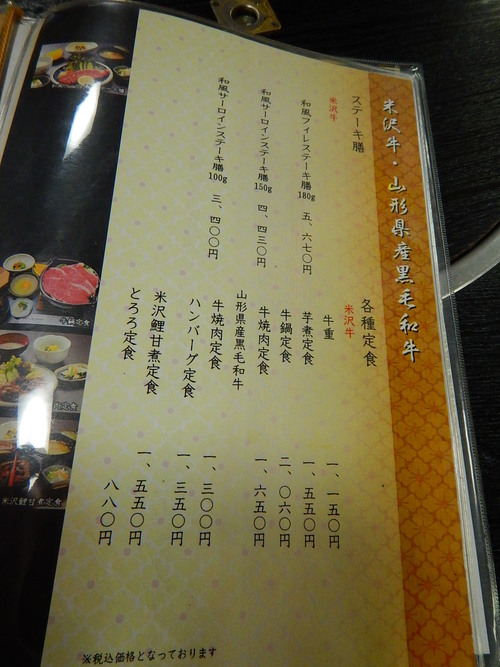 米沢牛・山形県産黒毛和牛
ステーキ膳
米沢牛
和風フィレステーキ膳 180g 五、六七〇円
和風サーロインステーキ膳 150g 四、四三〇円
和風サーロインステーキ膳 100g 三、四〇〇円
各種定食
米沢牛
牛重 一、一五〇円
芋煮定食 一、五五〇円
牛鍋定食 二、〇六〇円
牛焼肉定食 一、六五〇円
山形県産黒毛和牛
牛焼肉定食 一、三〇〇円
ハンバーグ定食 一、三五〇円
米沢鯉甘煮定食 一、五五〇円
とろろ定食 八八〇円
※税込価格となっております
米沢鯉甘煮定食